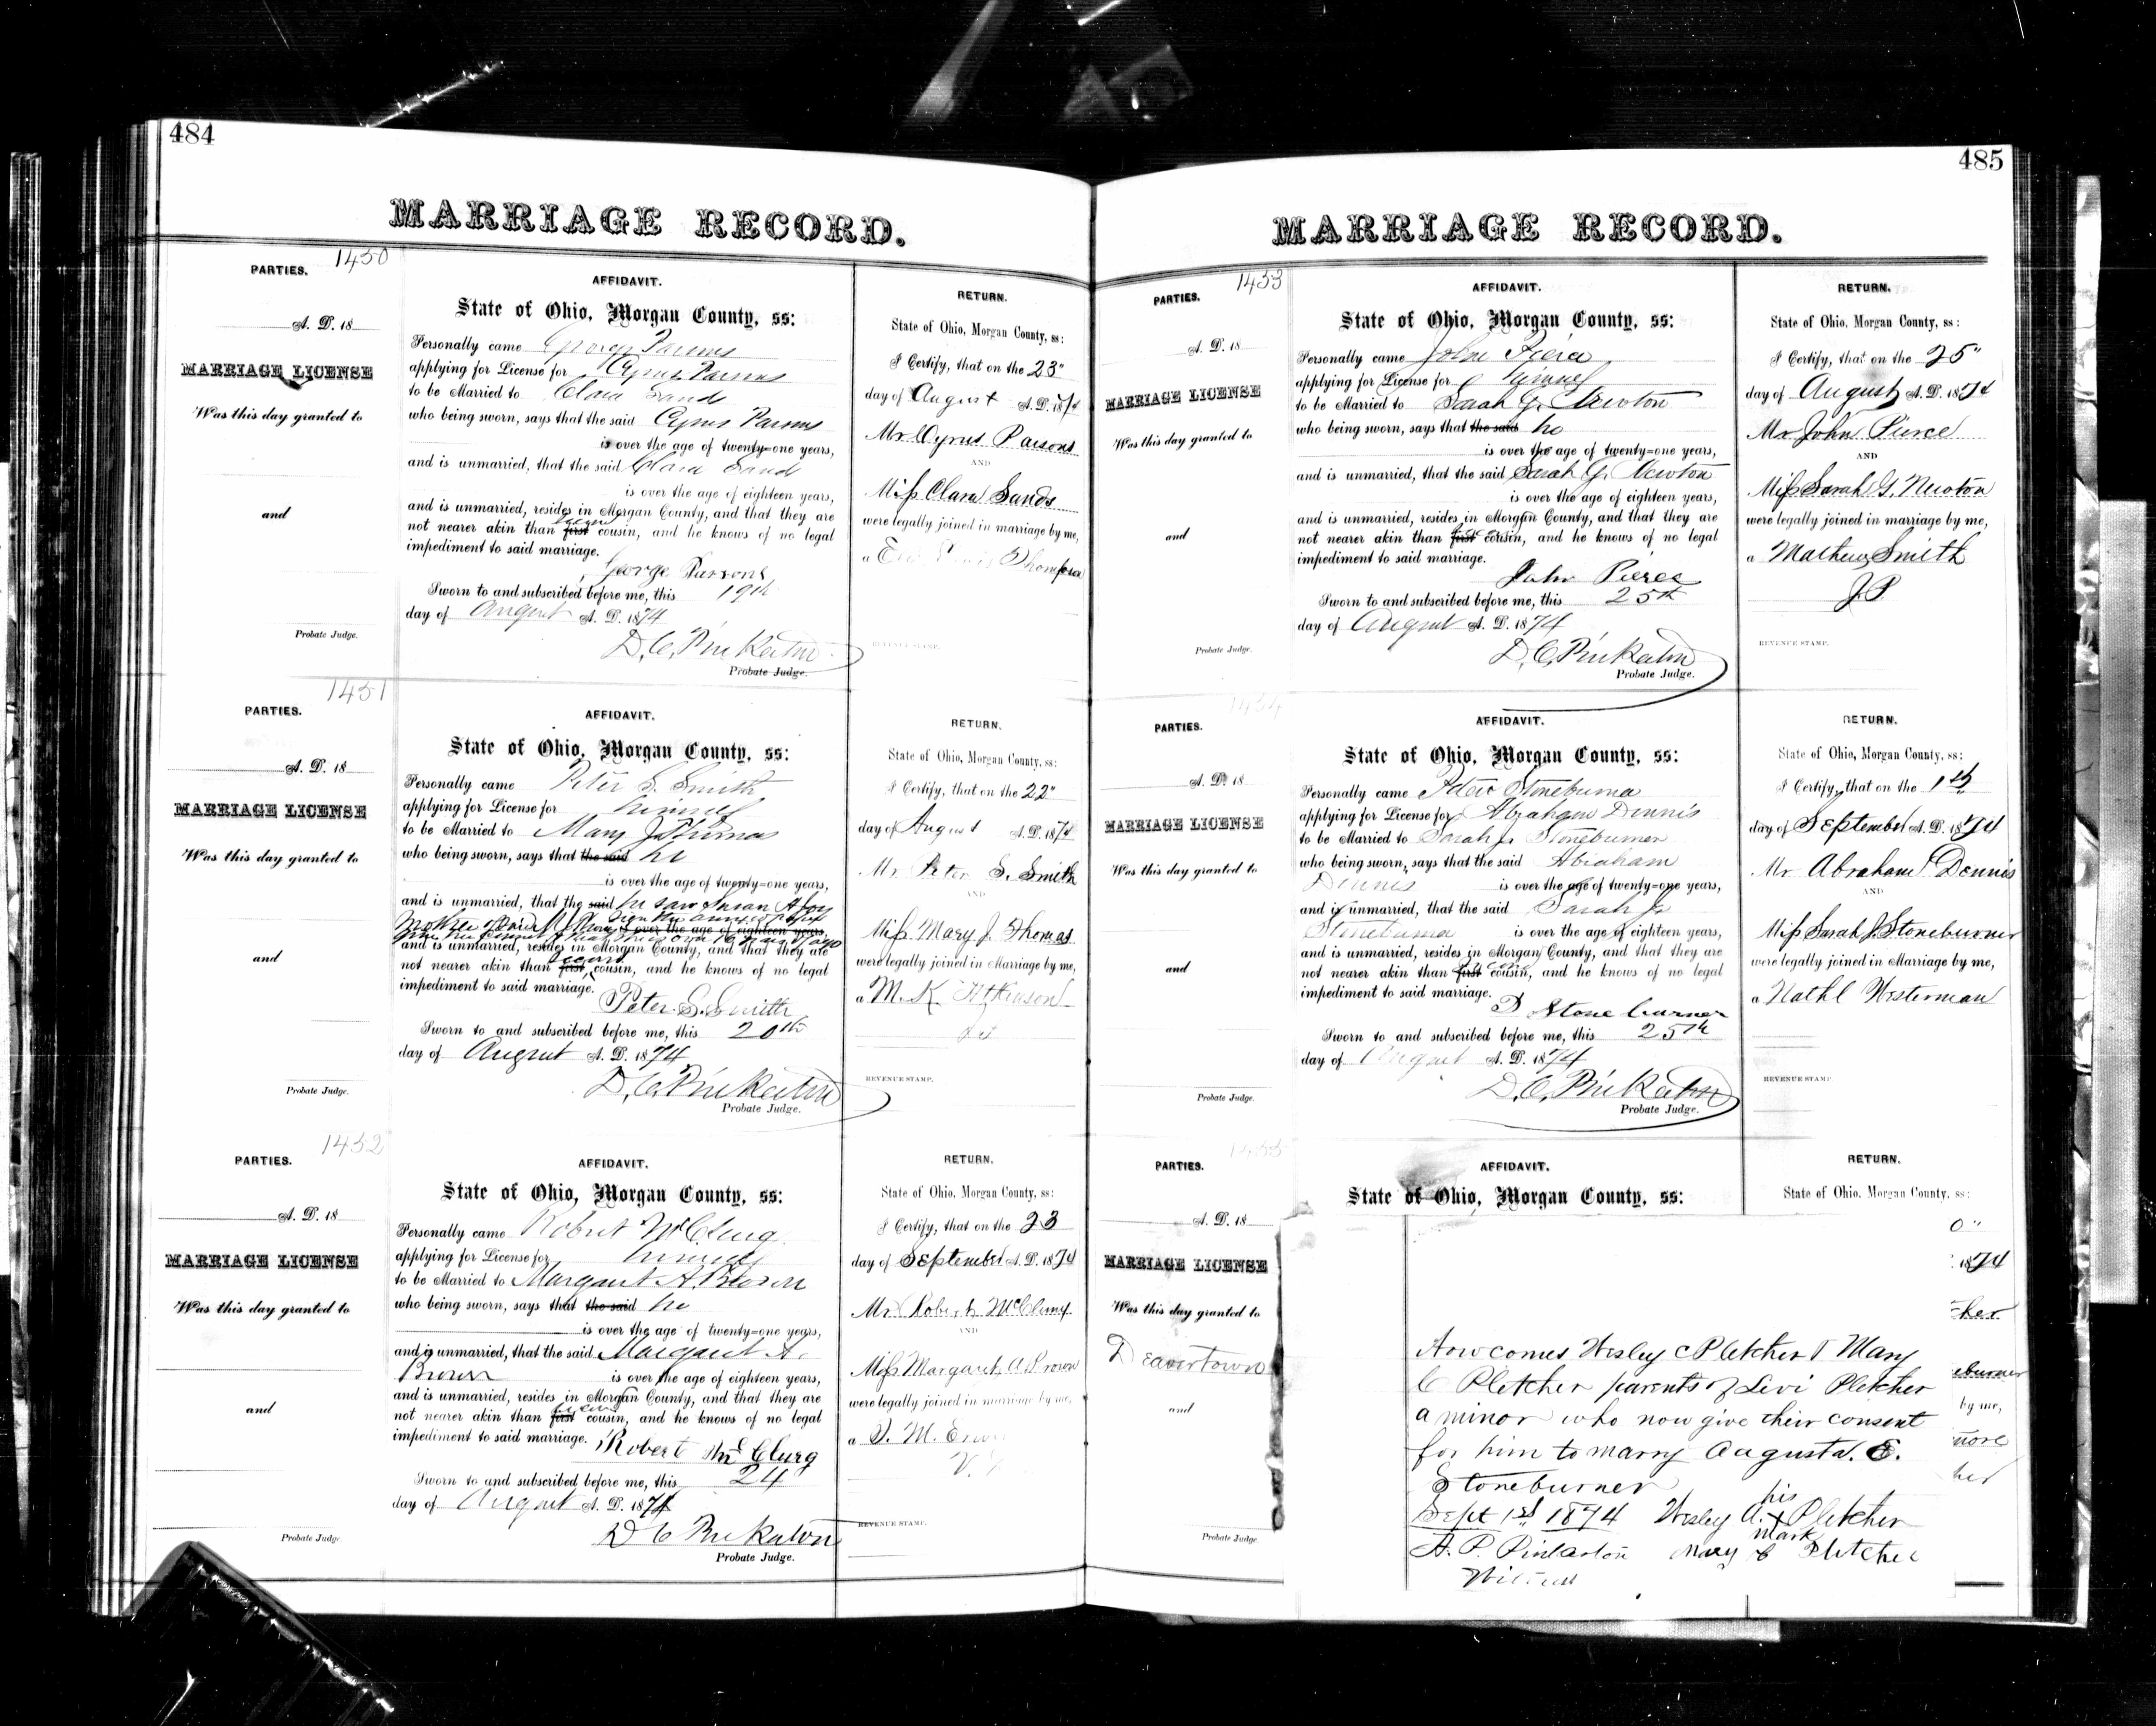 484
MARRIAGE RECORD.
1450
PARTIES.
A. D. 18
MARRIAGE LICENSE
Was this day granted to
and
Probate Judge.
AFFIDAVIT.
State of Ohio, Morgan County, ss:
Personally came George Parsons
applying for License for Cyrus Parsons
to be Married to Clara Sands
who being sworn, says that the said Cyrus Parsons
is over the age of twenty=one years,
and is unmarried, that the said Clara Sands
is over the age of eighteen years,
and is unmarried, resides in Morgan County, and that they are
second
not nearer akin than first cousin, and he knows of no legal
impediment to said marriage.
George Parsons
Sworn to and subscribed before me, this 19th
day of August A. D. 1874
D. C. Pinkerton
Probate Judge.
RETURN.
State of Ohio, Morgan County, ss:
I Certify, that on the 23"
day of August A. D. 1874
Mr Cyrus Parsons
AND
Miss Clara Sands
were legally joined in marriage by me,
a Thompson
REVENUE STAMP.
1451
PARTIES.
A. D. 18
MARRIAGE LICENSE
Was this day granted to
and
Probate Judge.
AFFIDAVIT.
State of Ohio, Morgan County, ss:
Personally came Peter S. Smith
applying for License for himself
to be Married to Mary J Thomas
who being sworn, says that the said he
is over the age of twenty=one years,
and is unmarried, that the said he saw Susan A
Mother of sign the annexed paper
is over the age of eighteen years,
and is unmarried, resides in Morgan County, and that they are
second
not nearer akin than first cousin, and he knows of no legal
impediment to said marriage.
Peter S. Smith
Sworn to and subscribed before me, this 20th
day of August A. D. 1874
D. C. Pinkerton
Probate Judge.
RETURN.
State of Ohio, Morgan County, ss:
I Certify, that on the 22"
day of August A. D. 1874
Mr Peter S. Smith
AND
Miss Mary J. Thomas
were legally joined in Marriage by me,
a M. K. Atkinson
REVENUE STAMP.
1452
PARTIES.
A. D. 18
MARRIAGE LICENSE
Was this day granted to
and
Probate Judge.
AFFIDAVIT.
State of Ohio, Morgan County, ss:
Personally came Robert McClurg
applying for License for himself
to be Married to Margaret A. Brown
who being sworn, says that the said he
is over the age of twenty=one years,
and is unmarried, that the said Margaret A.
Brown is over the age of eighteen years,
and is unmarried, resides in Morgan County, and that they are
second
not nearer akin than first cousin, and he knows of no legal
impediment to said marriage.
Robert McClurg
Sworn to and subscribed before me, this 24
day of August A. D. 1874
D C Pinkerton
Probate Judge.
RETURN.
State of Ohio, Morgan County, ss:
I Certify, that on the 23
day of September A. D. 1874
Mr Robert McClurg
AND
Miss Margaret A Brown
were legally joined in marriage by me,
a
REVENUE STAMP.
485
MARRIAGE RECORD.
1453
PARTIES.
A. D. 18
MARRIAGE LICENSE
Was this day granted to
and
Probate Judge.
AFFIDAVIT.
State of Ohio, Morgan County, ss:
Personally came John Pierce
applying for License for himself
to be Married to Sarah G. Newton
who being sworn, says that the said he
is over the age of twenty=one years,
and is unmarried, that the said Sarah G. Newton
is over the age of eighteen years,
and is unmarried, resides in Morgan County, and that they are
not nearer akin than first cousin, and he knows of no legal
impediment to said marriage.
John Pierce
Sworn to and subscribed before me, this 25th
day of August A. D. 1874
D. C. Pinkerton
Probate Judge.
RETURN.
State of Ohio, Morgan County, ss:
I Certify, that on the 25"
day of August A. D. 1874
Mr John Pierce
AND
Miss Sarah G. Newton
were legally joined in marriage by me,
a Mathew Smith
J. P
REVENUE STAMP.
1454
PARTIES.
A. D. 18
MARRIAGE LICENSE
Was this day granted to
and
Probate Judge.
AFFIDAVIT.
State of Ohio, Morgan County, ss:
Personally came Peter Stoneburner
applying for License for Abraham Dennis
to be Married to Sarah J. Stoneburner
who being sworn, says that the said Abraham
Dennis is over the age of twenty=one years,
and is unmarried, that the said Sarah J.
Stoneburner is over the age of eighteen years,
and is unmarried, resides in Morgan County, and that they are
second
not nearer akin than first cousin, and he knows of no legal
impediment to said marriage.
P Stoneburner
Sworn to and subscribed before me, this 25th
day of August A. D. 1874
D. C. Pinkerton
Probate Judge.
RETURN.
State of Ohio, Morgan County, ss:
I Certify, that on the 1st
day of September A. D. 1874
Mr Abraham Dennis
AND
Miss Sarah J. Stoneburner
were legally joined in Marriage by me,
a Nathl Westerman
REVENUE STAMP
1455
PARTIES.
A. D. 18
MARRIAGE LICENSE
Was this day granted to
Deavertown
and
Probate Judge.
AFFIDAVIT.
State of Ohio, Morgan County, ss:
RETURN.
State of Ohio, Morgan County, ss:
0"
1874
cher
eburner
by me,
more
her
Now comes Wesley Pletcher & Mary
C Pletcher parents of Levi Pletcher
a minor who now give their consent
for him to marry Augusta. E.
Stoneburner
his
Sept 1st 1874 Wesley A. X Pletcher
mark
A. P. Pinkerton Mary C Pletcher
Witness